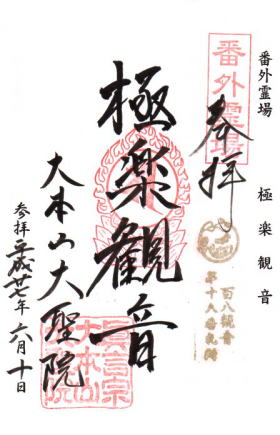 番外霊場　極楽観音
番外霊場
奉拝
百八観音
第十八番札所
極楽観音
大本山大聖院
真言宗
大本山
参拝平成廿七年六月十日